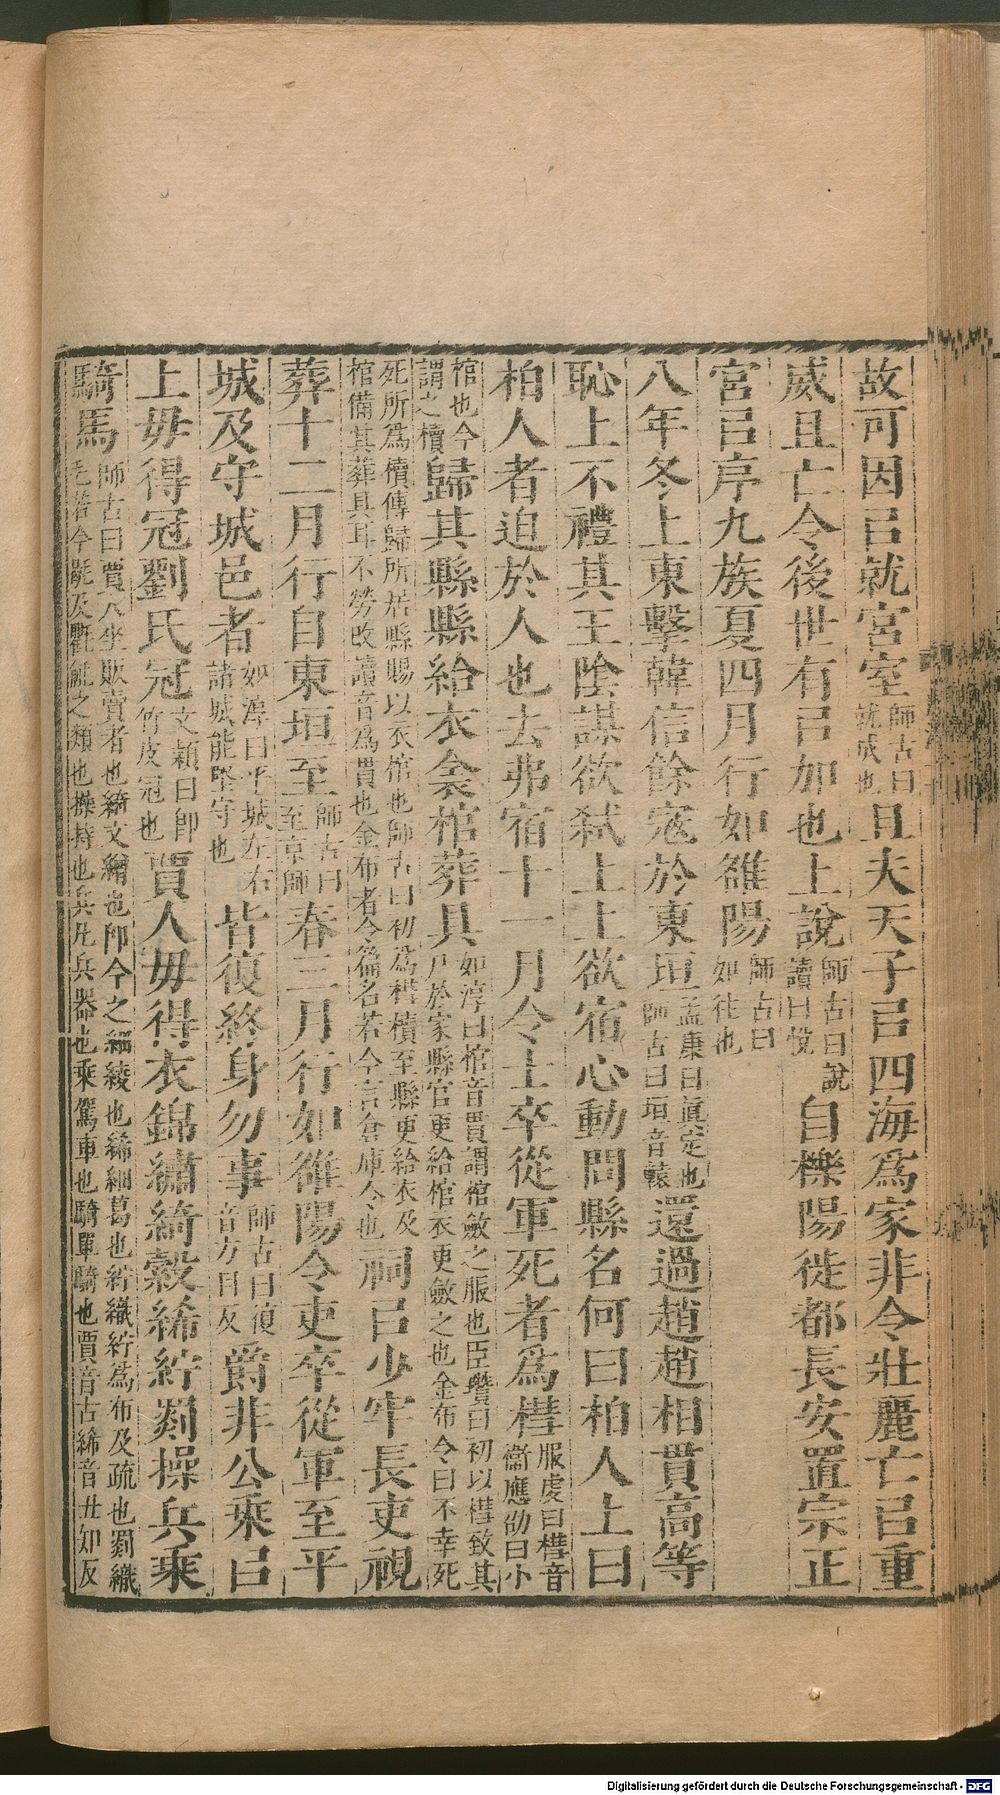 故可因㠯就宮室師古曰就成也且夫天子㠯四海爲家非令壯麗亡㠯重
威且亡令後世有㠯加也上說師古曰說讀曰悅自櫟陽徙都長安置宗正
官㠯序九族夏四月行如雒陽師古曰如往也
八年冬上東擊韓信餘寇於東垣孟康曰眞定也師古曰垣音轅還過趙趙相貫高等
恥上不禮其王陰謀欲弑上上欲宿心動問縣名何曰柏人上曰
柏人者迫於人也去弗宿十一月令士卒從軍死者爲槥服虔曰槥音衞應劭曰小
棺也今謂之櫝歸其縣縣給衣衾棺葬具如淳曰棺音貫謂棺斂之服也臣瓚曰初以槥致其尸於家縣官更給棺衣更斂之也金布令曰不幸死
死所爲櫝傳歸所居縣賜以衣棺也師古曰初爲槥櫝至縣更給衣及棺備其葬具耳不勞改讀音爲貫也金布者令篇名若今言倉庫令也祠㠯少牢長吏視
葬十二月行自東垣至師古曰至京師春三月行如雒陽令吏卒從軍至平
城及守城邑者如淳曰平城左右諸城能堅守也皆復終身勿事師古曰復音方目反爵非公乘㠯
上毋得冠劉氏冠文穎曰卽竹皮冠也賈人毋得衣錦繡綺縠絺紵罽操兵乘
騎馬師古曰賈人坐販賣者也綺文繒也卽今之細綾也絺細葛也紵織紵爲布及疏也罽織毛若今毼及氍毹之類也操持也兵凡兵器也乘駕車也騎單騎也賈音古絺音丑知反
Digitalisierung gefördert durch die Deutsche Forschungsgemeinschaft - DFG